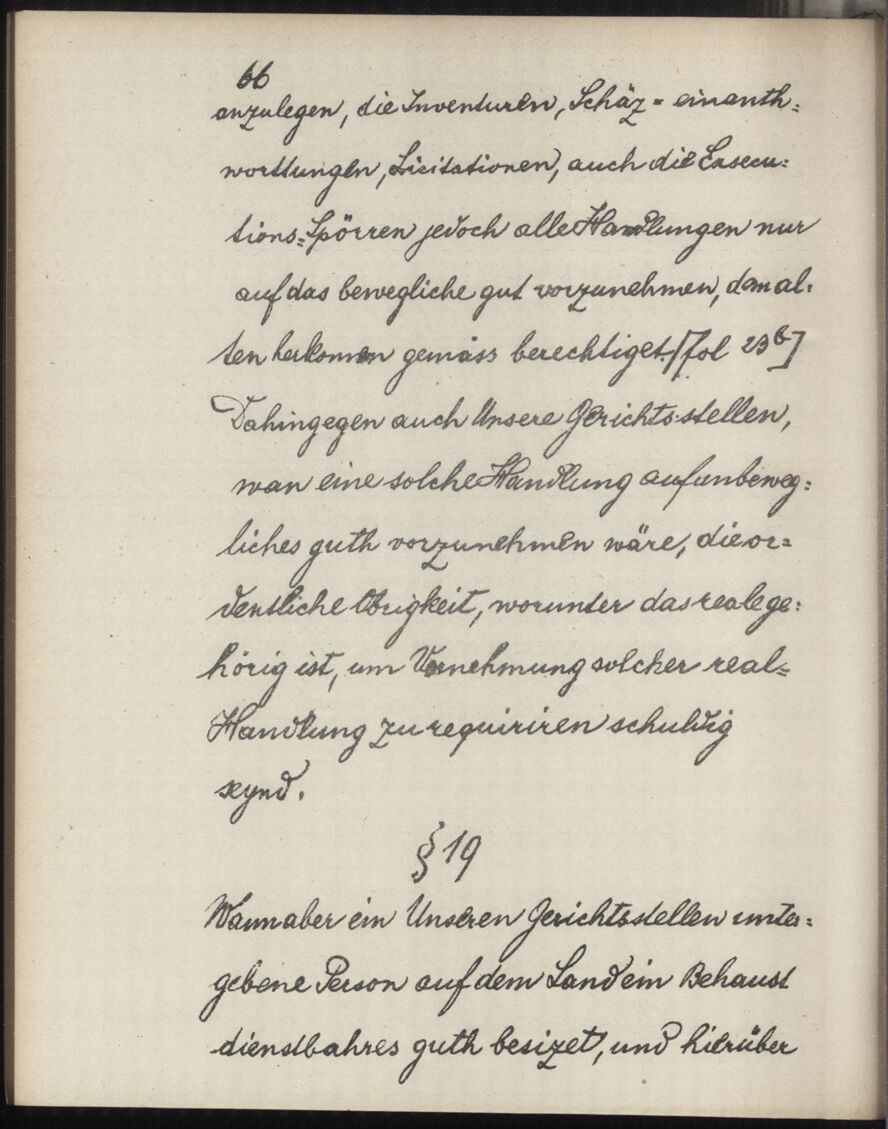 66
anzulegen, die Inventuren, Schäz= einanth=
worttungen, Licitationen, auch die Execu=
tions=Spörren jedoch alle Handlungen nur
auf das bewegliche gut vorzunehmen, dem al=
ten herkomen gemäss berechtiget. [fol 23b]
Dahingegen auch Unsere Gerichts-stellen,
wan eine solche Handlung auf unbeweg=
liches guth vorzunehmen wäre, die or=
dentliche Obrigkeit, worunter das reale ge=
hörig ist, um Vernehmung solcher real=
Handlung zu requiriren schuldig
seynd.
§ 19
Wann aber ein Unseren Gerichtsstellen unter=
gebene Person auf dem Land ein Behaust
dienstbahres guth besizet, und hierüber